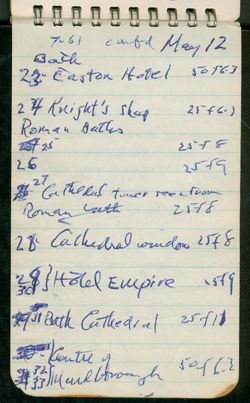 7-61 cont'd May 12
Bath
23 Easton Hotel 50 f6.3
24 Knight's shop 25 f6.3
Roman Baths
25 25 f8
26 25 f9
27 Cathedral tower seen from
Roman bath 25 f8
28 Cathedral window 25 f8
29 Hotel Empire 25 f9
30
31 Bath Cathedral 25 f11
32 Centre of 50 f6.3
33 Marlborough